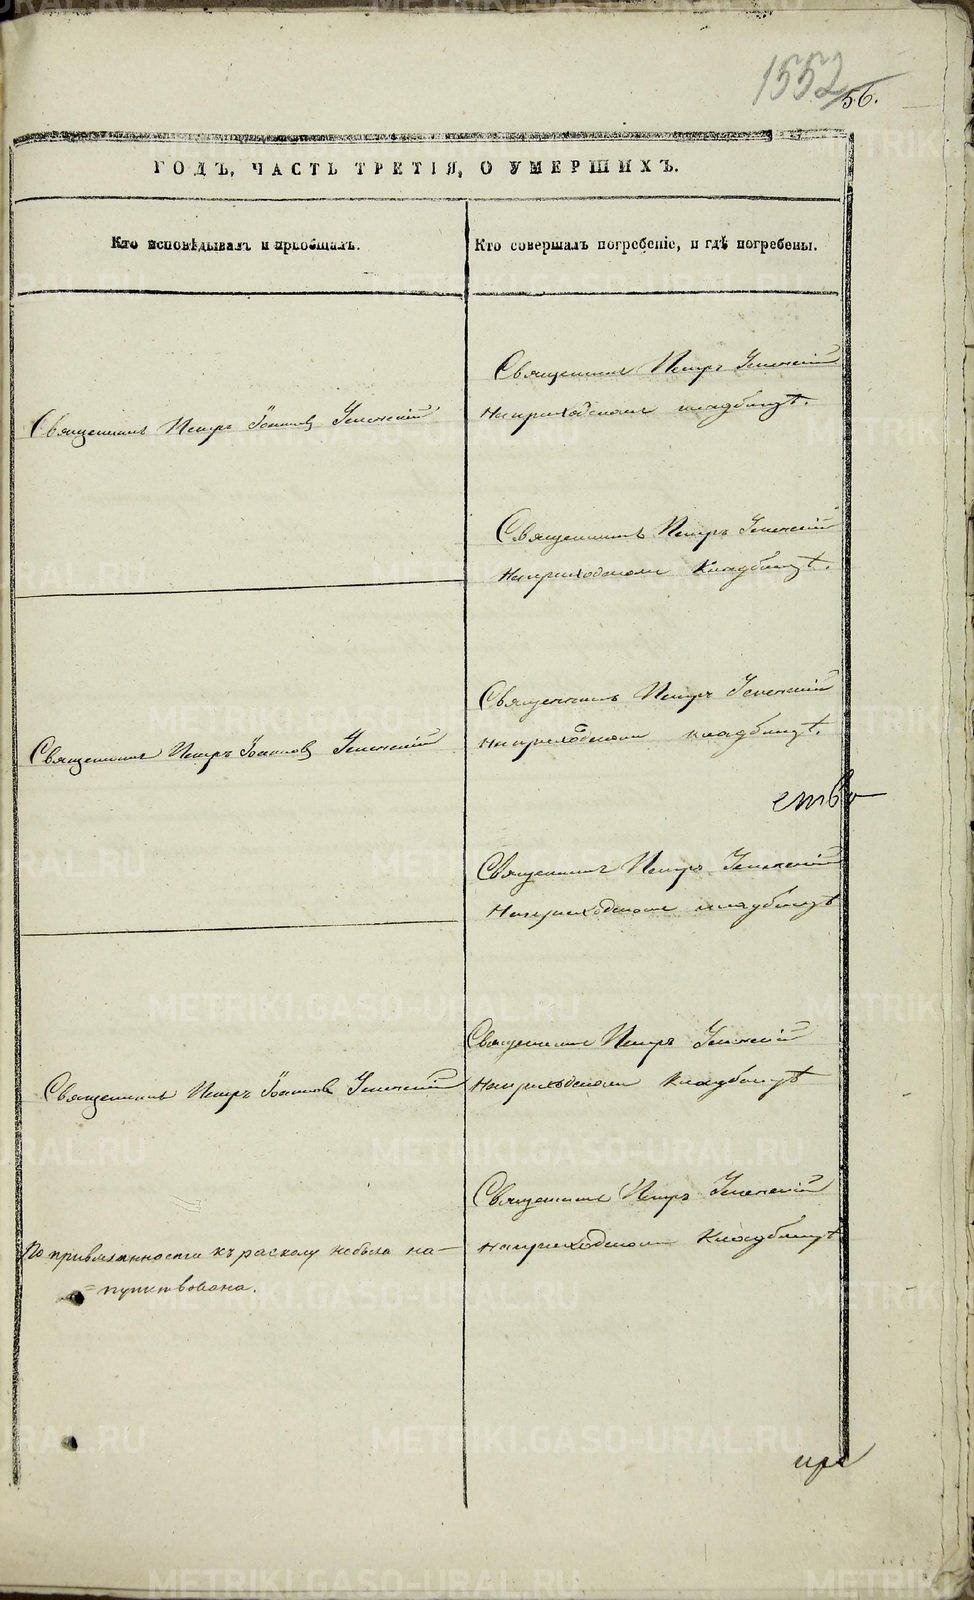 1552
56.
ГОДЪ, ЧАСТЬ ТРЕТІЯ, О УМЕРШИХЪ.
Кто исповѣдывалъ и пріобщалъ.
Кто совершалъ погребеніе, и гдѣ погребены.
Священникъ Петръ Успенскій
На приходскомъ кладбищѣ.
Священникъ Петръ Іоанновъ Успенскій
Священникъ Петръ Успенскій
На приходскомъ кладбищѣ.
Священникъ Петръ Успенскій
На приходскомъ кладбищѣ.
Священникъ Петръ Іоанновъ Успенскій
Священникъ Петръ Успенскій
На приходскомъ кладбищѣ
Священникъ Петръ Успенскій
На приходскомъ кладбищѣ
Священникъ Петръ Іоанновъ Успенскій
Священникъ Петръ Успенскій
На приходскомъ кладбищѣ
По привязанности къ расколу небыла на-
=путствована.
METRIKI.GASO-URAL.RU